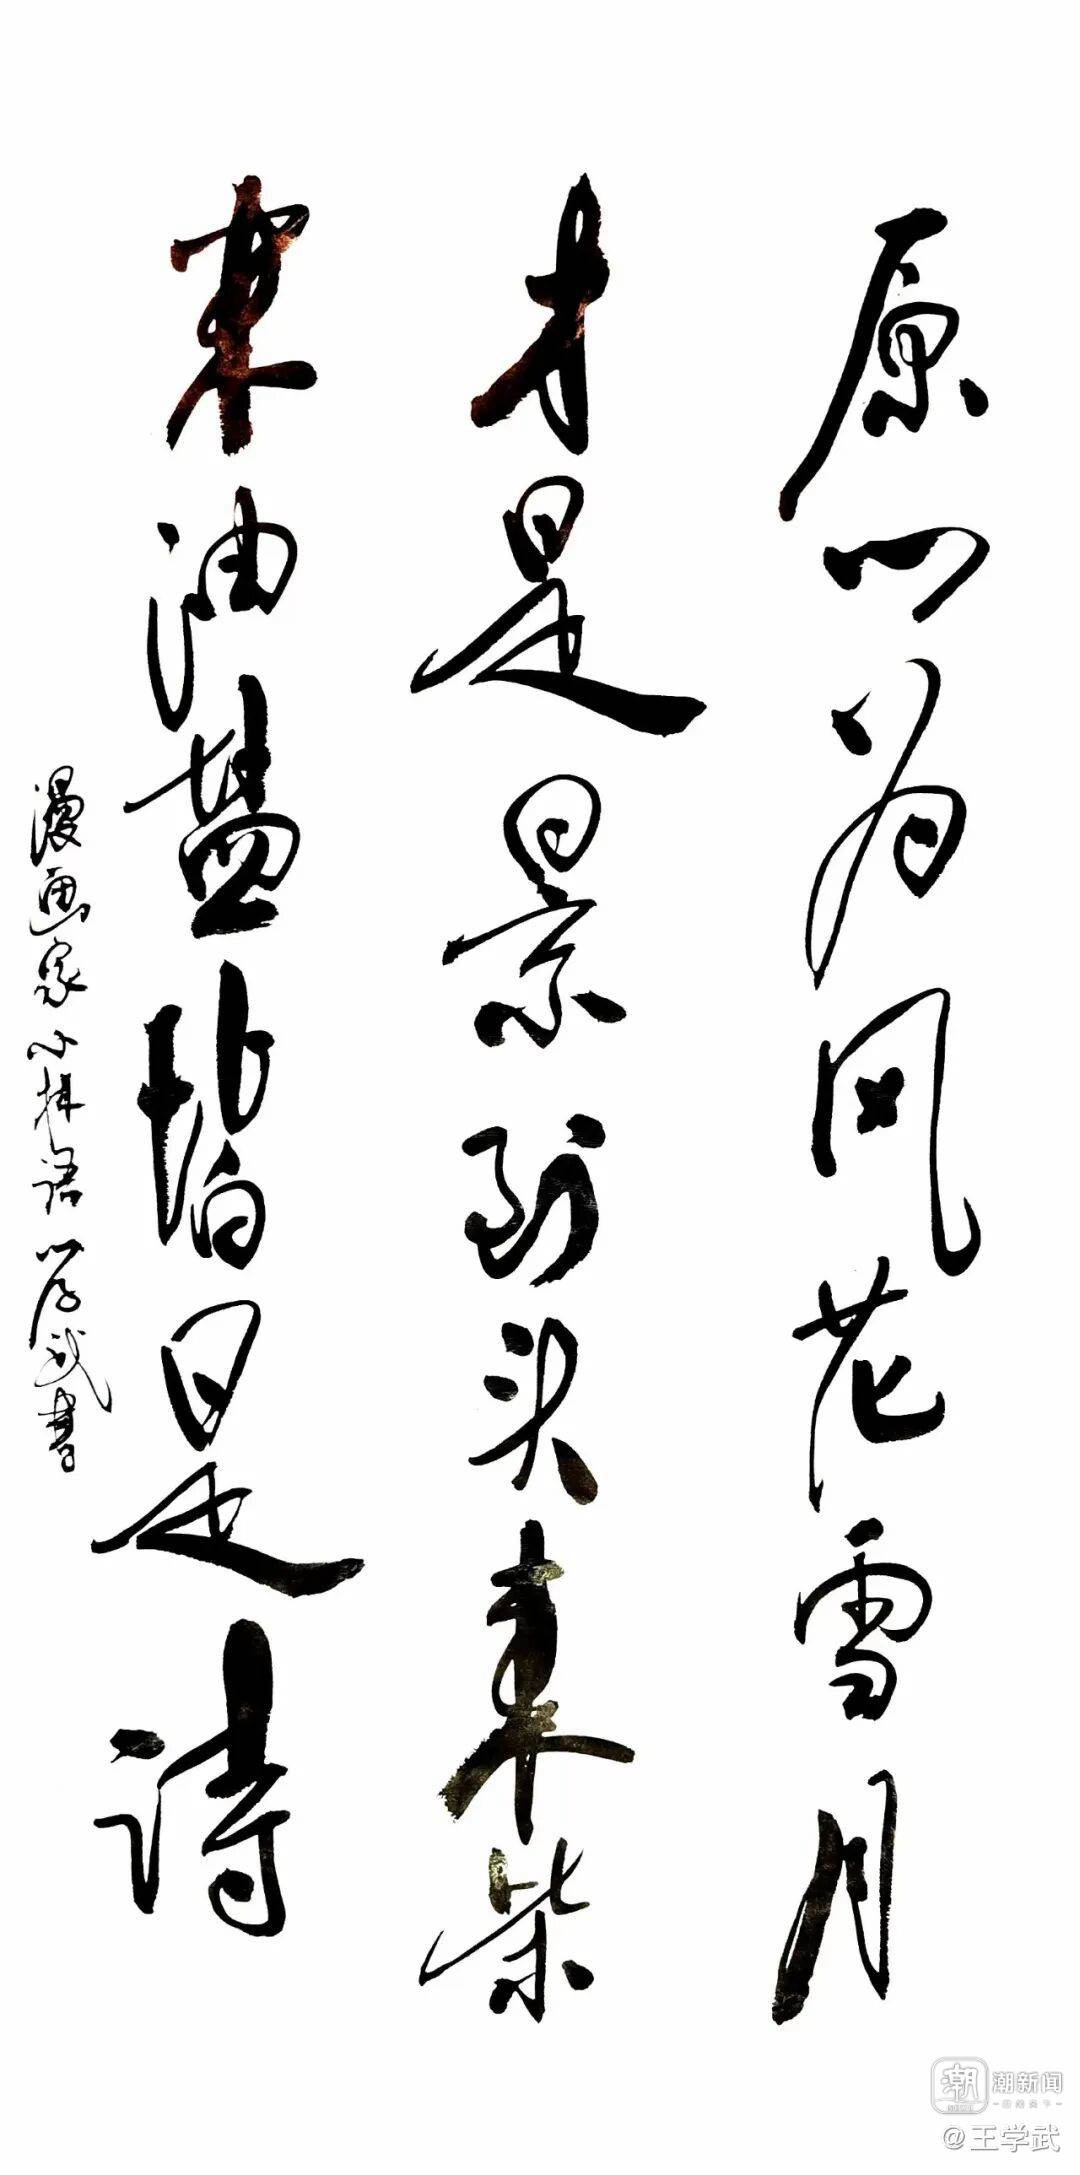 原以为风花雪月
才是景到头来柴
米油盐皆是诗
漫画家小林语 学武书
潮新闻
@王学武